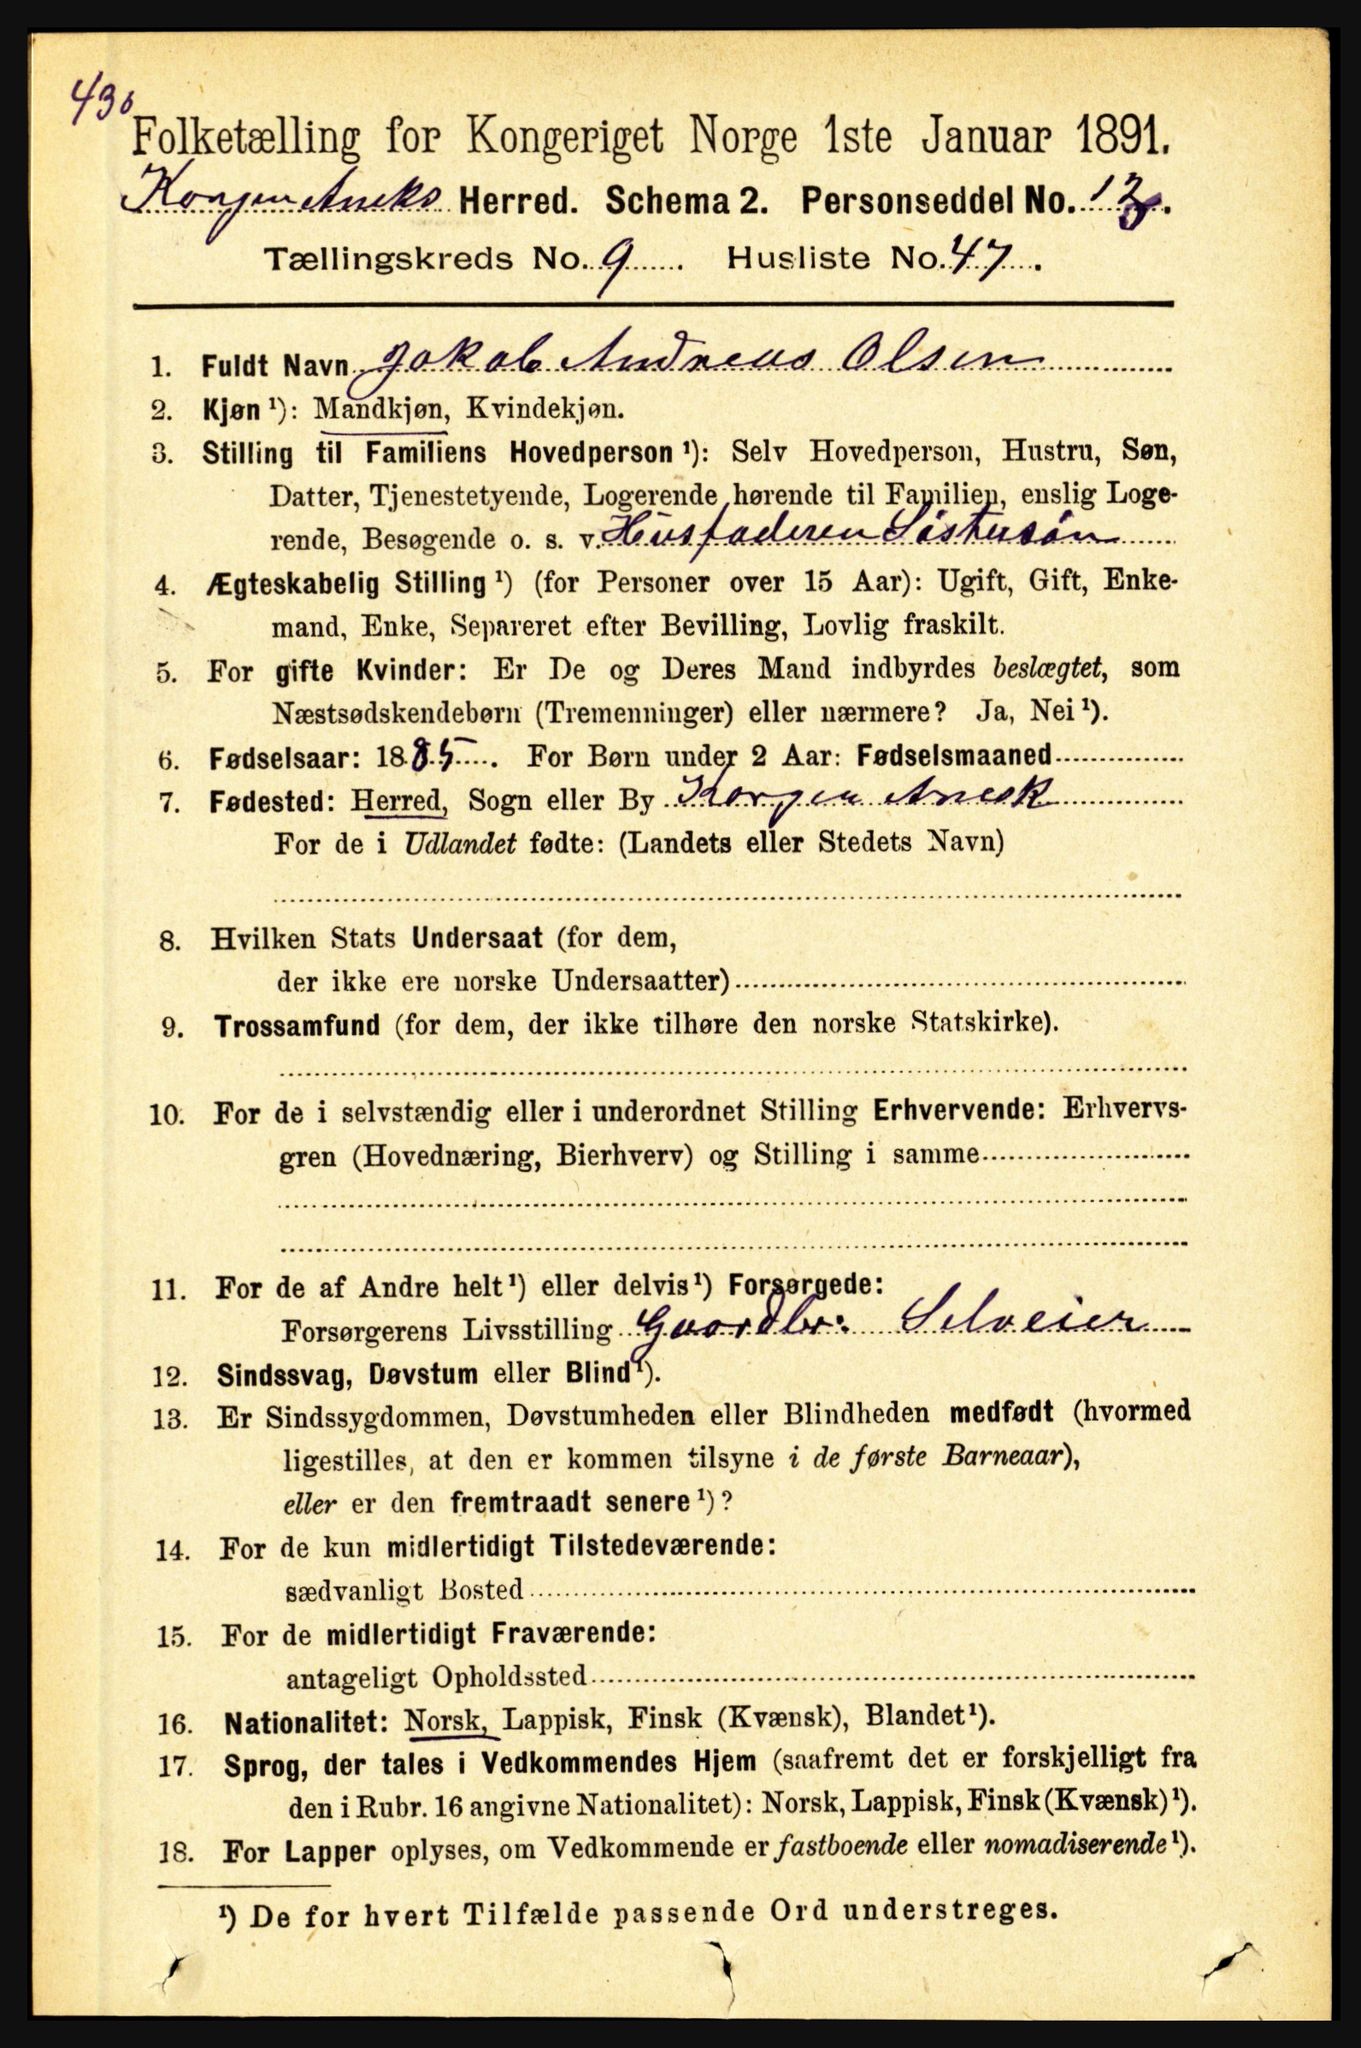 430
Folketælling for Kongeriget Norge 1ste Januar 1891.
Korgen Aneks Herred. Schema 2. Personseddel No. 13.
Tællingskreds No. 9 . Husliste No. 47 .
1. Fuldt Navn Jakob Andreas Olsen
2. Kjøn ¹): Mandkjøn, Kvindekjøn.
3. Stilling til Familiens Hovedperson ¹): Selv Hovedperson, Hustru, Søn,
Datter, Tjenestetyende, Logerende hørende til Familien, enslig Loge-
rende, Besøgende o. s. v. Husfaderen Søstersøn
4. Ægteskabelig Stilling ¹) (for Personer over 15 Aar): Ugift, Gift, Enke-
mand, Enke, Separeret efter Bevilling, Lovlig fraskilt.
5. For gifte Kvinder: Er De og Deres Mand indbyrdes beslægtet, som
Næstsødskendebørn (Tremenninger) eller nærmere? Ja, Nei ¹).
6. Fødselsaar: 1885 . For Børn under 2 Aar: Fødselsmaaned
7. Fødested: Herred, Sogn eller By Korgen Anesk
For de i Udlandet fødte: (Landets eller Stedets Navn)
8. Hvilken Stats Undersaat (for dem,
der ikke ere norske Undersaatter)
9. Trossamfund (for dem, der ikke tilhøre den norske Statskirke).
10. For de i selvstændig eller i underordnet Stilling Erhvervende: Erhvervs-
gren (Hovednæring, Bierhverv) og Stilling i samme
11. For de af Andre helt ¹) eller delvis ¹) Forsørgede:
Forsørgerens Livsstilling Gaardbr: Selveier
12. Sindssvag, Døvstum eller Blind ¹).
13. Er Sindssygdommen, Døvstumheden eller Blindheden medfødt (hvormed
ligestilles, at den er kommen tilsyne i de første Barneaar),
eller er den fremtraadt senere ¹)?
14. For de kun midlertidigt Tilstedeværende:
sædvanligt Bosted
15. For de midlertidigt Fraværende:
antageligt Opholdssted
16. Nationalitet: Norsk, Lappisk, Finsk (Kvænsk), Blandet ¹).
17. Sprog, der tales i Vedkommendes Hjem (saafremt det er forskjelligt fra
den i Rubr. 16 angivne Nationalitet): Norsk, Lappisk, Finsk (Kvænsk) ¹).
18. For Lapper oplyses, om Vedkommende er fastboende eller nomadiserende ¹).
¹) De for hvert Tilfælde passende Ord understreges.